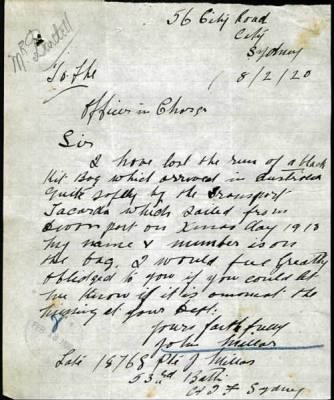 56 City Road
City
Sydney
8/2/20
To The
Officer in Charge
Sir
I have lost the run of a black
Kit Bag which arrived in Australia
quite safely by the Transport
which sailed from
Devonport on Xmas day 1918
My name & number is on
the bag, I would feel greatly
obledged to you if you could let
me know if it is amongst the
at your Dept.
yours faithfully
John Millar
Late Pte J Millar
53rd Battn
A I F Sydney